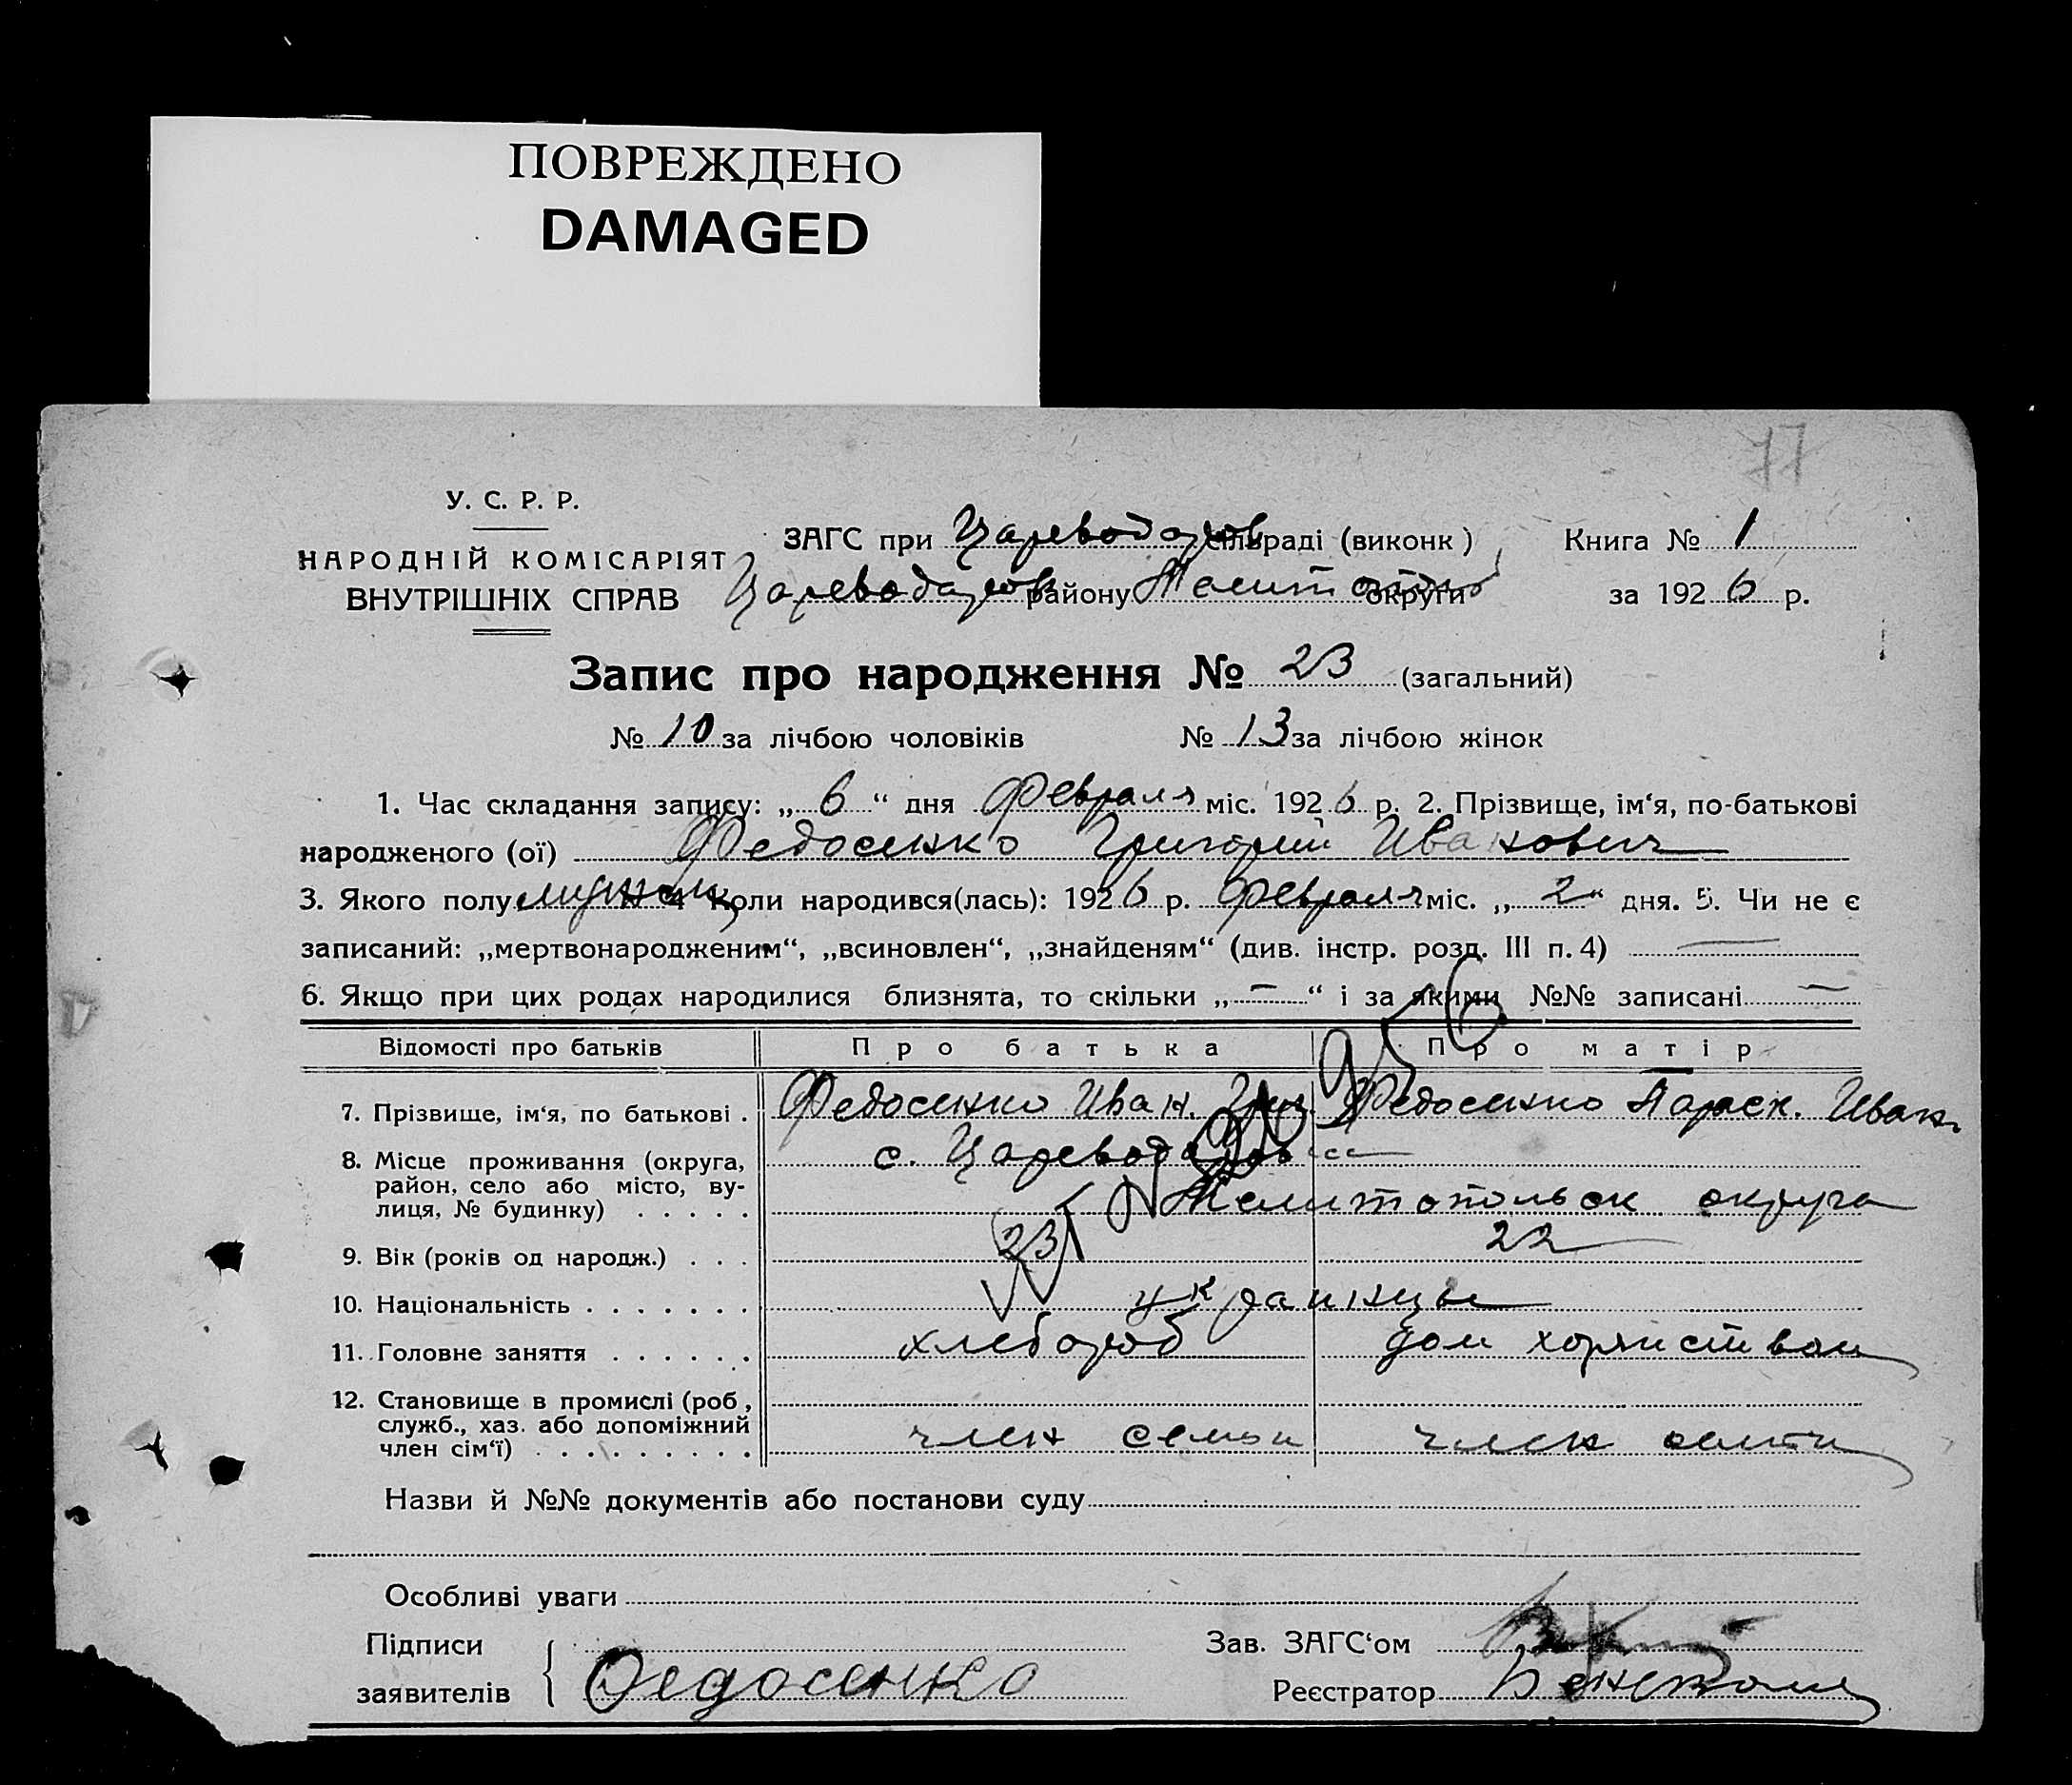 ПОВРЕЖДЕНО
DAMAGED
77
У. С. Р. Р.
НАРОДНІЙ КОМІСАРІЯТ
ВНУТРІШНІХ СПРАВ
ЗАГС при Цареводаров сільраді (виконк )
Цареводаров району Мелитоп округи
Книга № 1
за 1926 р.
Запис про народження № 23 (загальний)
№ 10 за лічбою чоловіків № 13 за лічбою жінок
1. Час складання запису: „ 6 “ дня Февраля міс. 1926 р. 2. Прізвище, ім‘я, по-батькові
народженого (ої) Федосенко Григорий Иванович
3. Якого полу мужск 4 Коли народився(лась): 1926 р. Февраля міс. „ 2 “ дня. 5. Чи не є
записаний: „мертвонародженим“, „всиновлен“, „знайденям“ (див. інстр. розд. III п. 4) —
6. Якщо при цих родах народилися близнята, то скільки „ — “ і за якими №№ записані —
Відомості про батьків Про батька Про матір
7. Прізвище, ім‘я, по батькові . Федосенко Иван. Григ. Федосенко Параск. Иван.
8. Місце проживання (округа, с. Царевода
район, село або місто, ву-
лиця, № будинку) . . . . . Мелитопольск округа
9. Вік (років од народж.) . . . 23 22
10. Національність . . . . . . . украинцы
11. Головне заняття . . . . . . хлебороб дом хозяйством
12. Становище в промислі (роб ,
служб., хаз. або допоміжний
член сім‘ї) . . . . . . . . . член семьи член семьи
Назви й №№ документів або постанови суду
Особливі уваги
Підписи
заявителів Федосенко
Зав. ЗАГС‘ом
Реєстратор